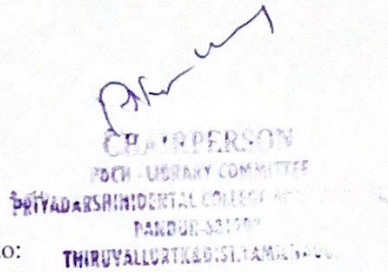 CHAIRPERSON
PDCH - LIBRARY COMMITTEE
PRIYADARSHINI DENTAL COLLEGE
PANDUR-631
to:
THIRUVALLUR TK & DIST. TAMIL